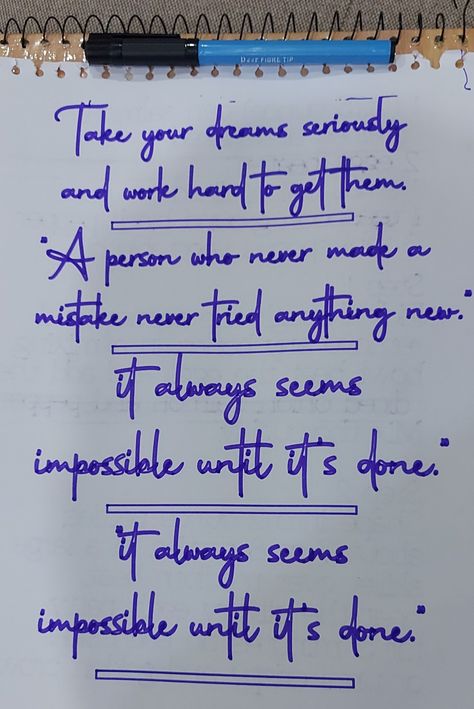 BEST FIBRE TIP
Take your dreams seriously
and work hard to get them.
"A person who never made a
mistake never tried anything new."
it always seems
impossible until it's done."
"it always seems
impossible until it's done."